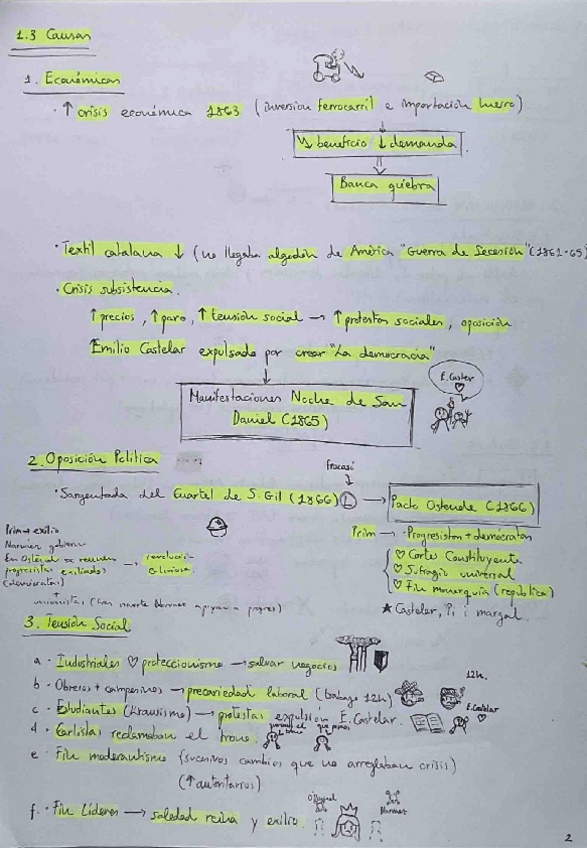 1.3 Causas
1. Económicas
· ↑ crisis económica 1863 (inversión ferrocarril e importación hierro)
↘ beneficio ↓ demanda
Banca quiebra
· Textil catalana ↓ (no llegaba algodón de América "Guerra de Secesión" (1861-65)
· Crisis subsistencia.
↑ precios, ↑ paro, ↑ tensión social → ↑ protestas sociales, oposición
Emilio Castelar expulsado por crear "La democracia"
E. Castelar
Manifestaciones Noche de San
Daniel (1865)
2. Oposición Política
fracasó
· Sargentada del Cuartel de S. Gil (1866) → Pacto Ostende (1866)
Prim → exilio
Narváez gobierno
En Ostende se reunen
progresistas exiliados → revolución
(demócratas) gloriosa
+
unionistas (tras muerte
Prim → · Progresistas + demócratas
♡ Cortes Constituyentes
♡ Sufragio universal
♡ Fin monarquía (república)
★ Castelar, Pi i margal.
3. Tensión Social
a · Industriales ♡ proteccionismo → salvar negocios
b · Obreros + campesinos → precariedad laboral (trabajo 12h)
12h.
c · Estudiantes (Krausismo) → protestas expulsión E. Castelar.
E. Castelar
d · Carlistas reclamaban el trono.
e · Fin moderantismo (sucesivos cambios que no arreglaban crisis)
(↑ autoritarios)
f. · Fin Líderes → soledad reina y exilio.
O'Donnell
Narváez
2